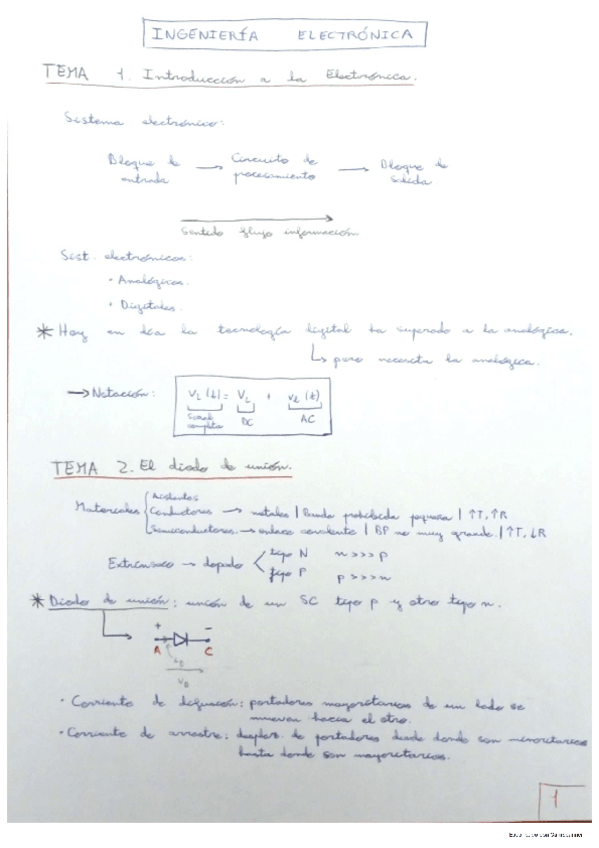 INGENIERÍA ELECTRÓNICA
TEMA 1. Introducción a la Electrónica.
Sistema electrónico:
Bloque de entrada → Circuito de procesamiento → Bloque de salida
Sentido flujo información
Sist. electrónicos:
· Analógicos.
· Digitales.
* Hoy en día la tecnología digital ha superado a la analógica.
↳ pero necesita la analógica.
→ Notación: VL(t) = VL + vl(t)
Señal completa DC AC
TEMA 2. El diodo de unión.
Materiales
Aislantes
Conductores → metales | Banda prohibida pequeña | ↑T, ↑R
Semiconductores → enlace covalente | BP no muy grande. | ↑T, ↓R
Extrínseco → dopado
tipo N n >>> p
tipo P p >>> n
* Diodo de unión: unión de un SC tipo p y otro tipo n.
+ -
A C
iD
VD
· Corriente de difusión: portadores mayoritarios de un lado se
mueven hacia el otro.
· Corriente de arrastre: desplaz. de portadores desde donde son minoritarios
hasta donde son mayoritarios.
1